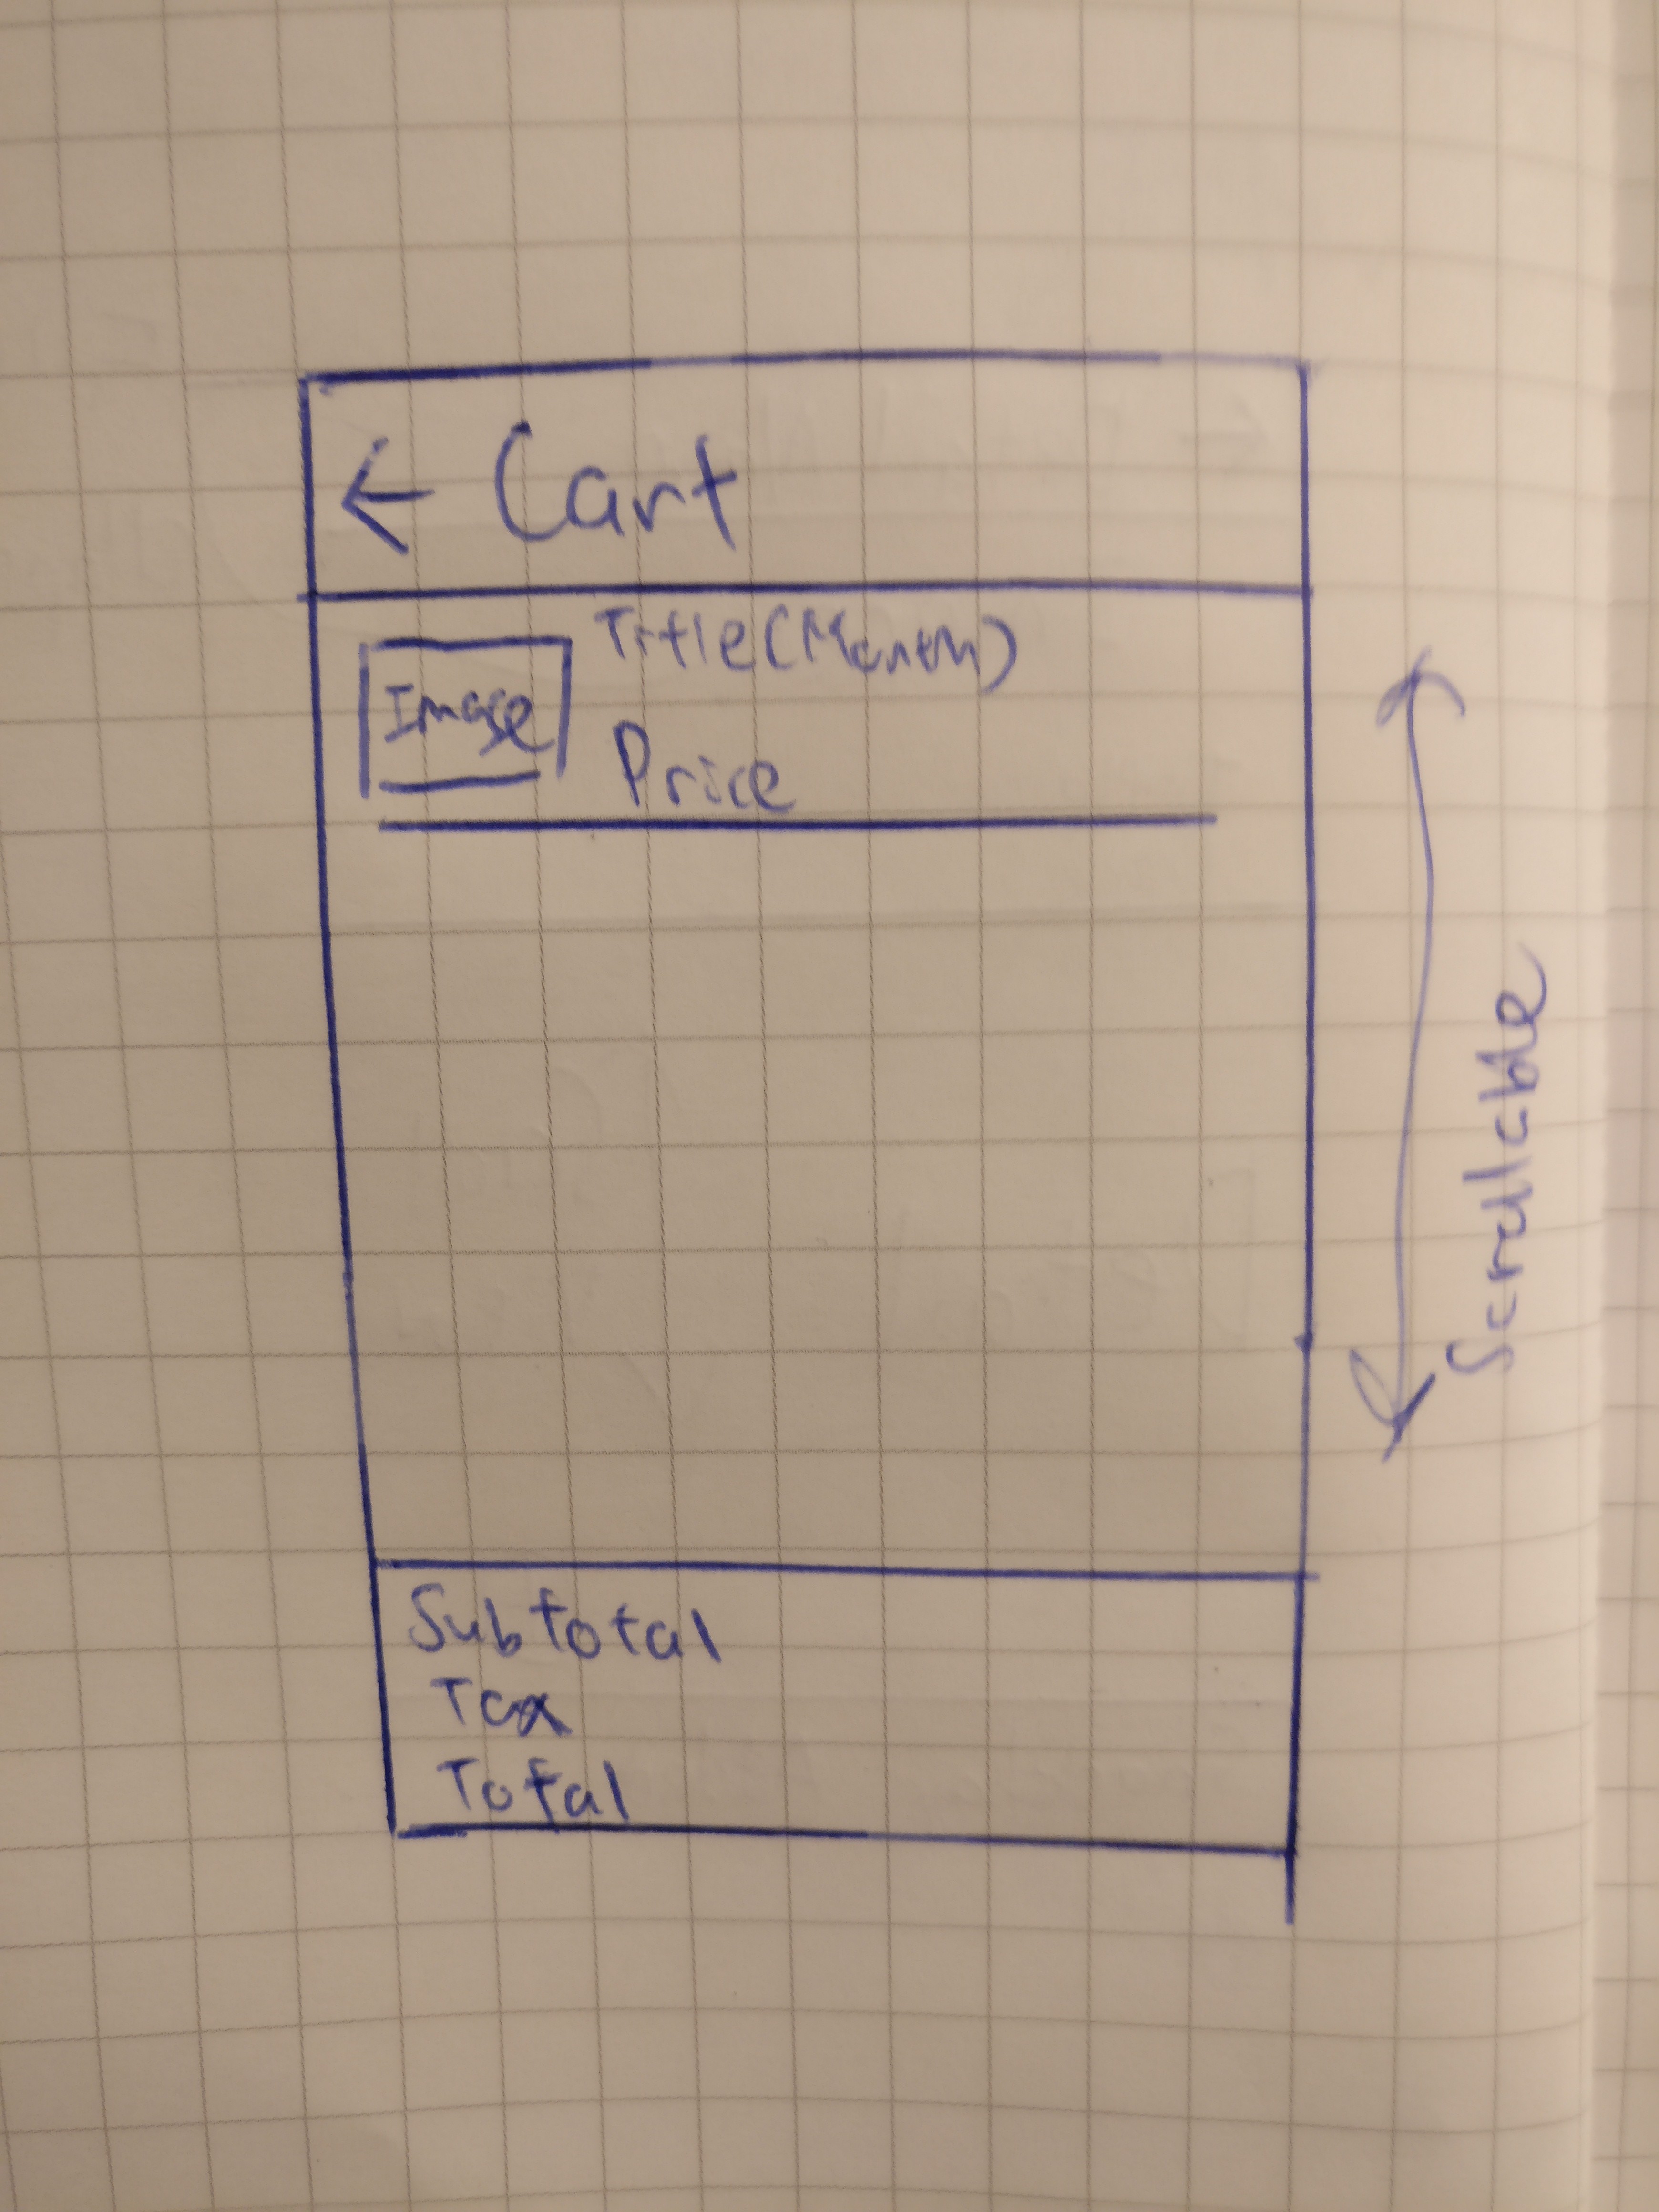 ← Cart
Title(Month)
Image
Price
Scrollable
Subtotal
Tax
Total